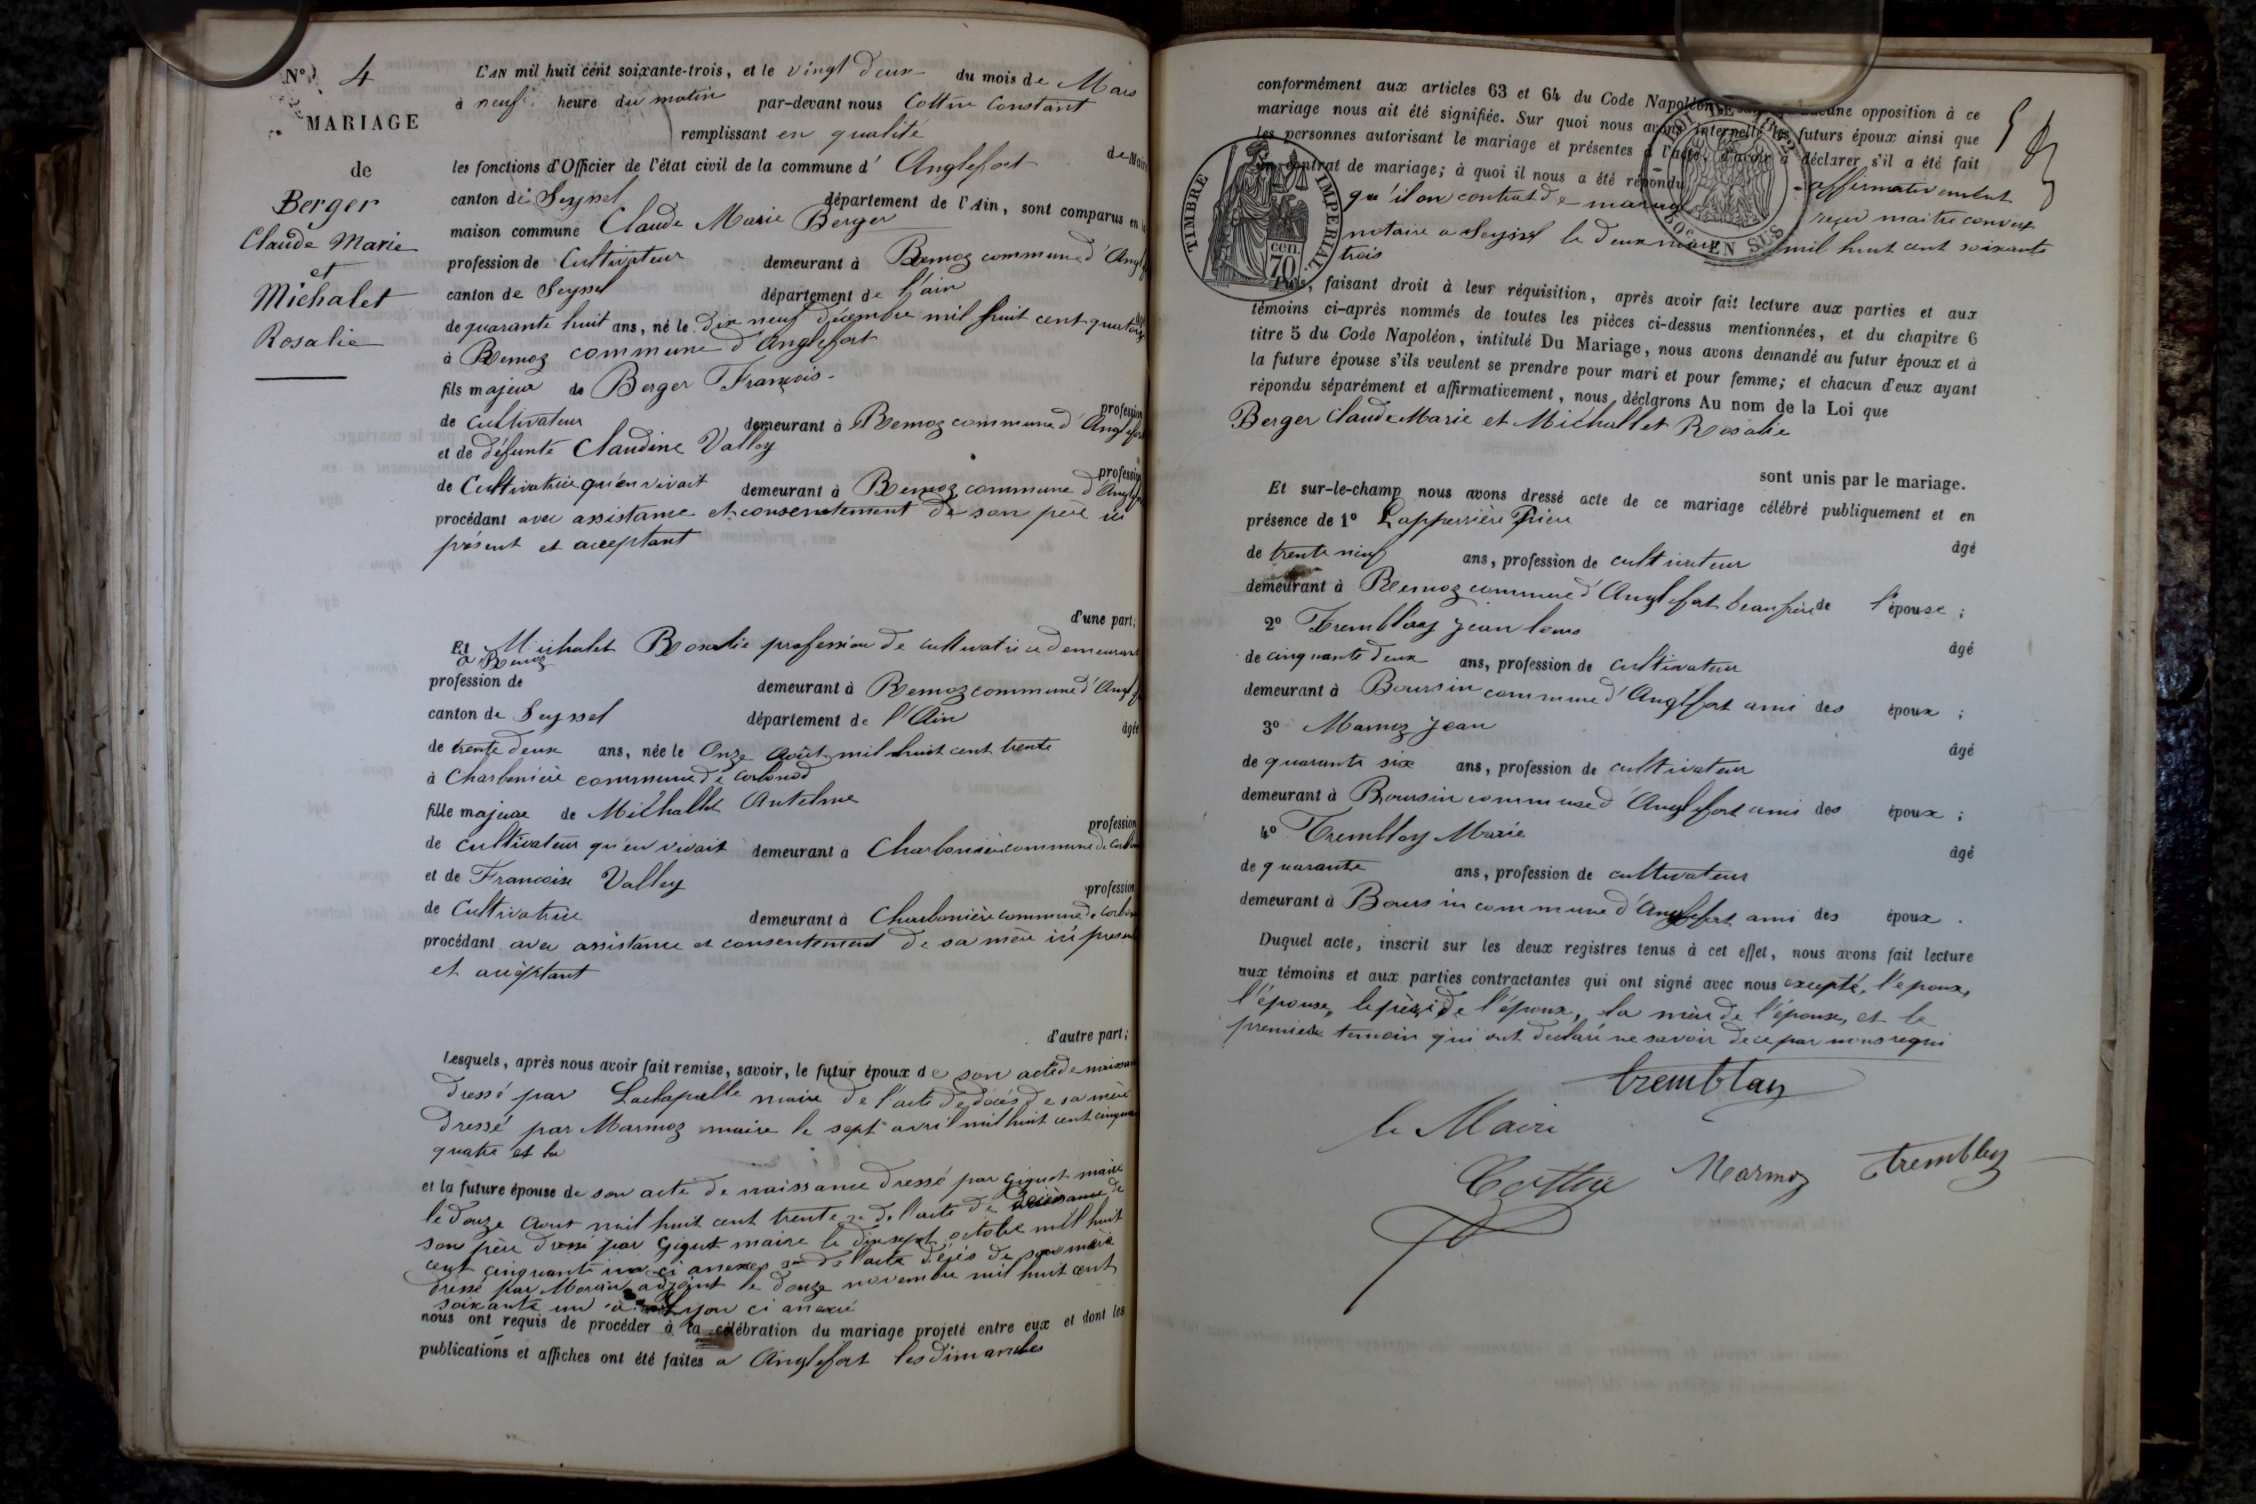 N° 4
MARIAGE
de
Berger
Claude Marie
et
Michalet
Rosalie
L'AN mil huit cent soixante-trois, et le vingt deux du mois de Mars
à neuf heure du matin par-devant nous Cottin Constant
remplissant en qualité de Maire
les fonctions d'Officier de l'état civil de la commune d' Anglefort
canton de Seyssel département de l'Ain, sont comparus en la
maison commune Claude Marie Berger
profession de Cultivateur demeurant à Remoz commune d'Angl
canton de Seyssel département de l'ain
de quarante huit ans, né le dix neuf décembre mil huit cent quatorze
à Remoz commune d'Anglefort
fils majeur de Berger François
profession
de cultivateur demeurant à Remoz commune d'Anglefort
et de défunte Claudine Valley
profession
de Cultivatrice qu'en vivait demeurant à Remoz commune d'Anglef
procédant avec assistance et consentement de son père ici
présent et acceptant
d'une part;
Et Michalet Rosalie profession de cultivatrice demeurant
a Remoz
profession de demeurant à Remoz commune d'Angl
canton de Seyssel département de l'Ain âgée
de trente deux ans, née le Onze Août mil huit cent trente
à Charbonière commune de Corbonod
fille majeure de Michallet Antelme
profession
de cultivateur qu'en vivait demeurant à Charbonière commune de Corbon
et de Francoise Valley
profession
de Cultivatrice demeurant à Charbonière commune de Corbon
procédant avec assistance et consentement de sa mère ici present
et acceptant
d'autre part;
Lesquels, après nous avoir fait remise, savoir, le futur époux de son acte de naissance
dressé par Lachapelle maire de l'acte de décés de sa mère
dressé par Marmoz maire le sept avril mil huit cent cinquante
quatre et la
et la future épouse de son acte de naissance dressé par Giguet maire
le douze Aout mil huit cent trente de l'acte de de
son père dressé par Giguet maire le dix sept octobre mil huit
cent cinquante un ci annexes de l'acte décés de mère
dressé par adjoint le douze novembre mil huit cent
soixante un à Lyon ci annexé
nous ont requis de procéder à la célébration du mariage projeté entre eux et dont les
publications et affiches ont été faites a Anglefort les dimanches
conformément aux articles 63 et 64 du Code Napoléon aucune opposition à ce
mariage nous ait été signifiée. Sur quoi nous avons interpellé les futurs époux ainsi que
les personnes autorisant le mariage et présentes à l'acte, d'avoir à déclarer s'il a été fait
un contrat de mariage; à quoi il nous a été répondu affirmativement
qu'il on contrat de mariage reçu maitre
notaire a Seyssel le deux mars mil huit cent soixante
trois
TIMBRE IMPERIAL
70 cen.
LOI DE 1862
2 10es EN SUS
Puis, faisant droit à leur réquisition, après avoir fait lecture aux parties et aux
témoins ci-après nommés de toutes les pièces ci-dessus mentionnées, et du chapitre 6
titre 5 du Code Napoléon, intitulé Du Mariage, nous avons demandé au futur époux et à
la future épouse s'ils veulent se prendre pour mari et pour femme; et chacun d'eux ayant
répondu séparément et affirmativement, nous déclarons Au nom de la Loi que
Berger Claude Marie et Michallet Rosalie
sont unis par le mariage.
Et sur-le-champ nous avons dressé acte de ce mariage célébré publiquement et en
présence de 1° Lapperrière
âgé
de trente neuf ans, profession de cultivateur
demeurant à Remoz commune d'Anglefort beaufrère de l'épouse;
2° Tremblay Jean louis
âgé
de cinquante deux ans, profession de cultivateur
demeurant à Boursin commune d'Anglefort ami des époux;
3° Marmoz Jean
âgé
de quarante six ans, profession de cultivateur
demeurant à Boursin commune d'Anglefort ami des époux;
4° Tremblay Marie
âgé
de quarante ans, profession de cultivateur
demeurant à Boursin commune d'Anglefort ami des époux.
Duquel acte, inscrit sur les deux registres tenus à cet effet, nous avons fait lecture
aux témoins et aux parties contractantes qui ont signé avec nous excepté, l'epoux,
l'épouse, le père de l'époux, la mère de l'épouse, et le
premiere temoin qui ont déclaré ne savoir de ce par nous requi
tremblay
le Maire
Cottin Marmoz tremblay